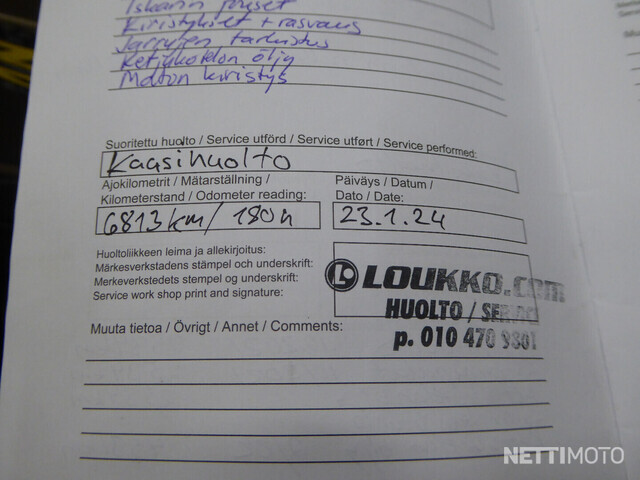 Iskarin
Kiristykset + rasvaus
Jarrujen tarkistus
Ketjukotelon öljy
Maton kiristys
Suoritettu huolto / Service utförd / Service utført / Service performed:
Kausihuolto
Ajokilometrit / Mätarställning /
Kilometerstand / Odometer reading:
Päiväys / Datum /
Dato / Date:
6813km/ 180h
23.1.24
Huoltoliikkeen leima ja allekirjoitus:
Märkesverkstadens stämpel och underskrift:
Merkeverkstedets stempel og underskrift:
Service work shop print and signature:
L LOUKKO.com
HUOLTO /
p. 010 470
Muuta tietoa / Övrigt / Annet / Comments:
NETTIMOTO